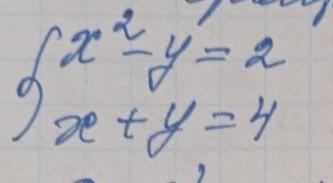 x² - y = 2
x + y = 4